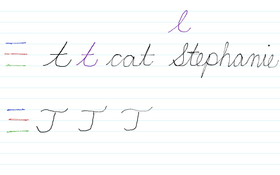 l
t t cat Stephanie
J J J